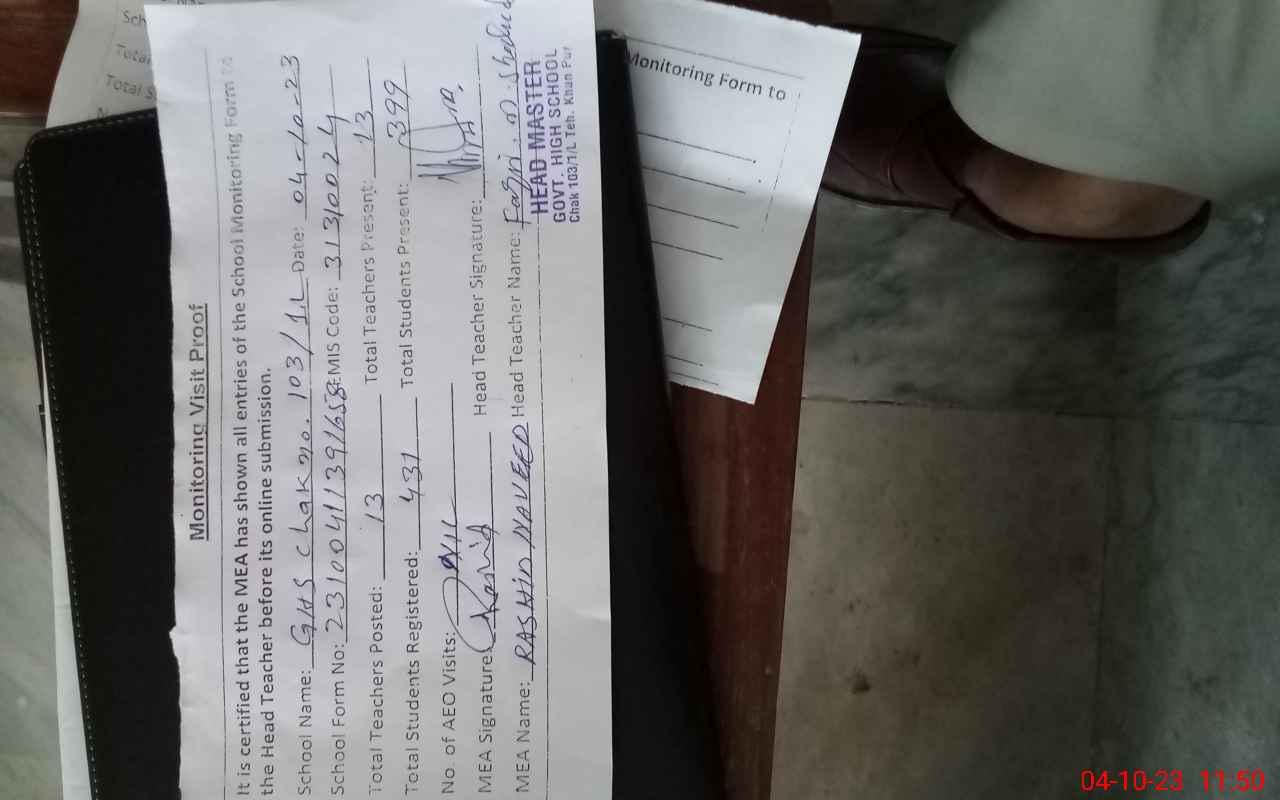 Monitoring Visit Proof
It is certified that the MEA has shown all entries of the School Monitoring Form to
the Head Teacher before its online submission.
School Name: GHS Chak no. 103/1.L Date: 04-10-23
School Form No: 231004113916585 EMIS Code: 31310024
Total Teachers Posted: 13 Total Teachers Present: 13
Total Students Registered: 431 Total Students Present: 399
No. of AEO Visits: Nil
MEA Signature: Rashid Head Teacher Signature:
MEA Name: RASHID NAVEED Head Teacher Name:
HEAD MASTER
GOVT. HIGH SCHOOL
Chak 103/1/L Teh. Khan Pur
Monitoring Form to
Sch
Total
Total S
04-10-23 11:50